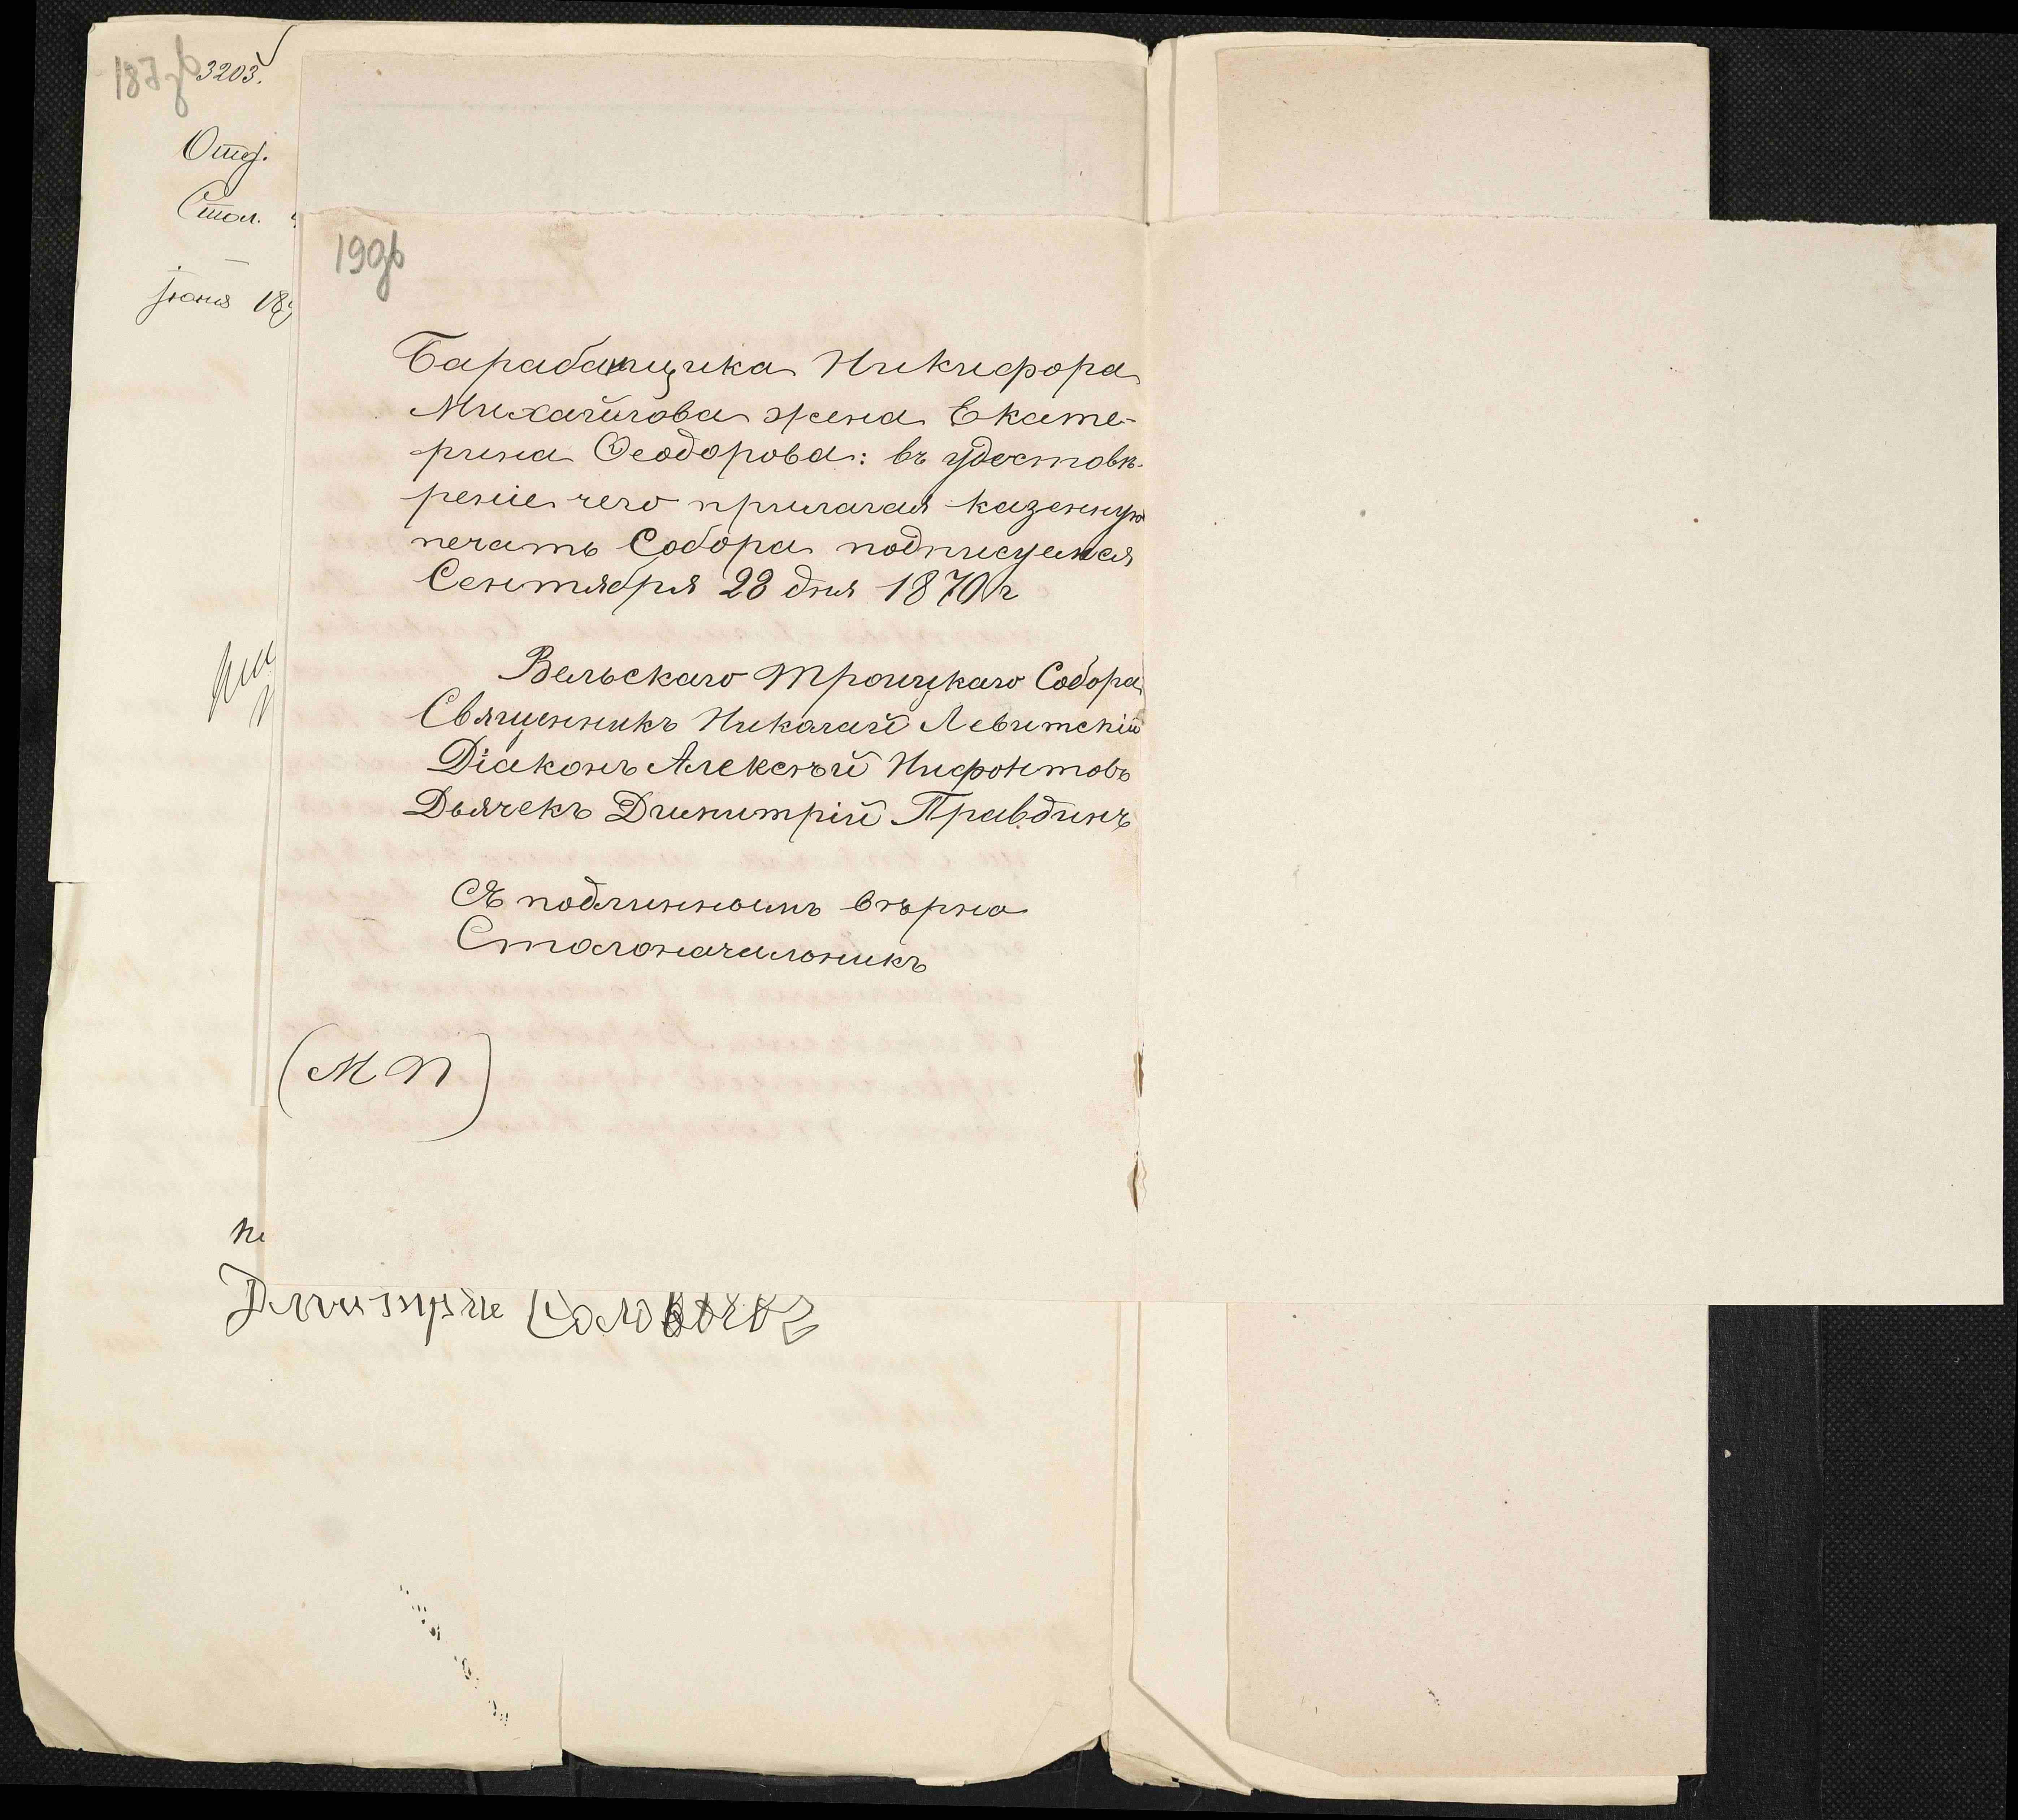 3203.
Отд.
Стол.
Іюня 18
190б
Барабанщика Никифора
Михайлова жена Екате-
рина Ѳеодорова: въ удостовѣ-
реніе чего прилагая казенную
печать Собора подписуемся
Сентября 28 дня 1870 г
Вельскаго Троицкаго Собора
Священникъ Николай Левитскій
Діаконъ Алексѣй Нифонтовъ
Дьячекъ Димитрій Правдинъ
Съ подлиннымъ вѣрно
Столоначальникъ
(М П)